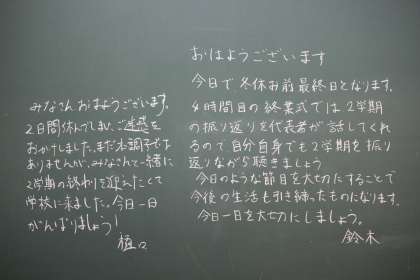 みなさんおはようございます。
2日間休んでしまい、ご迷惑を
おかけしました。まだ本調子では
ありませんが、みなさんと一緒に
2学期の終わりを迎えたくて
学校に来ました。今日一日
がんばりましょう!
樋口
おはようございます
今日で冬休み前最終日となります。
4時間目の終業式では2学期
の振り返りを代表者が話してくれ
るので自分自身でも2学期を振り
返りながら聴きましょう
今日のような節目を大切にすることで
今後の生活も引き練ったものになります。
今日一日を大切にしましょう。
鈴木